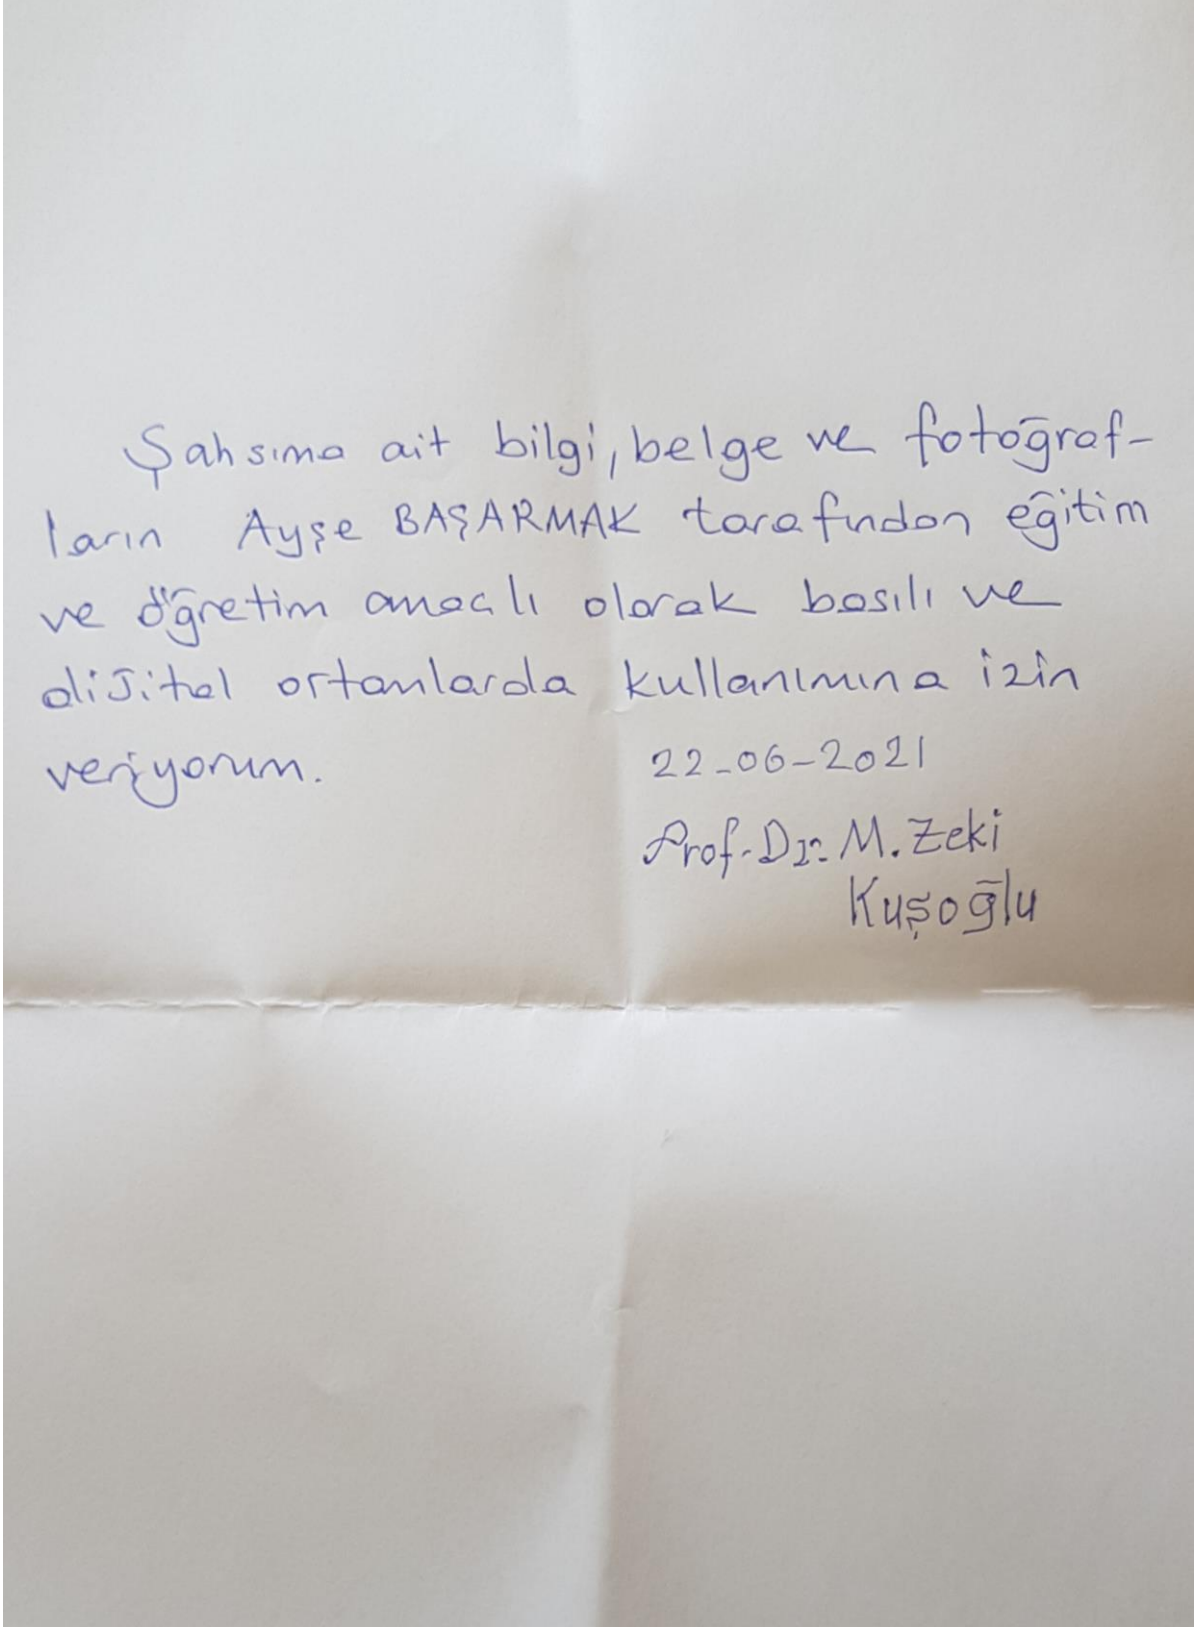 Şahsıma ait bilgi, belge ve fotoğraf-
ların Ayşe BAŞARMAK tarafından eğitim
ve öğretim amaçlı olarak basılı ve
dijital ortamlarda kullanımına izin
veriyorum.
22-06-2021
Prof. Dr. M. Zeki
Kuşoğlu